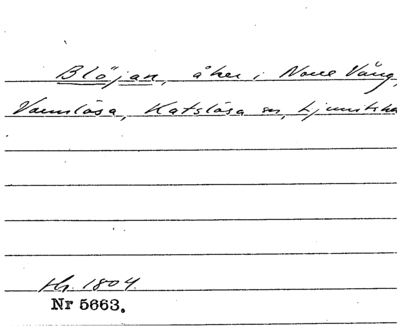 Blöjan, åker i Norre Vång,
Vannlösa, Katslösa sn, Ljunits hd
Hs. 1804.
Nr 5663.